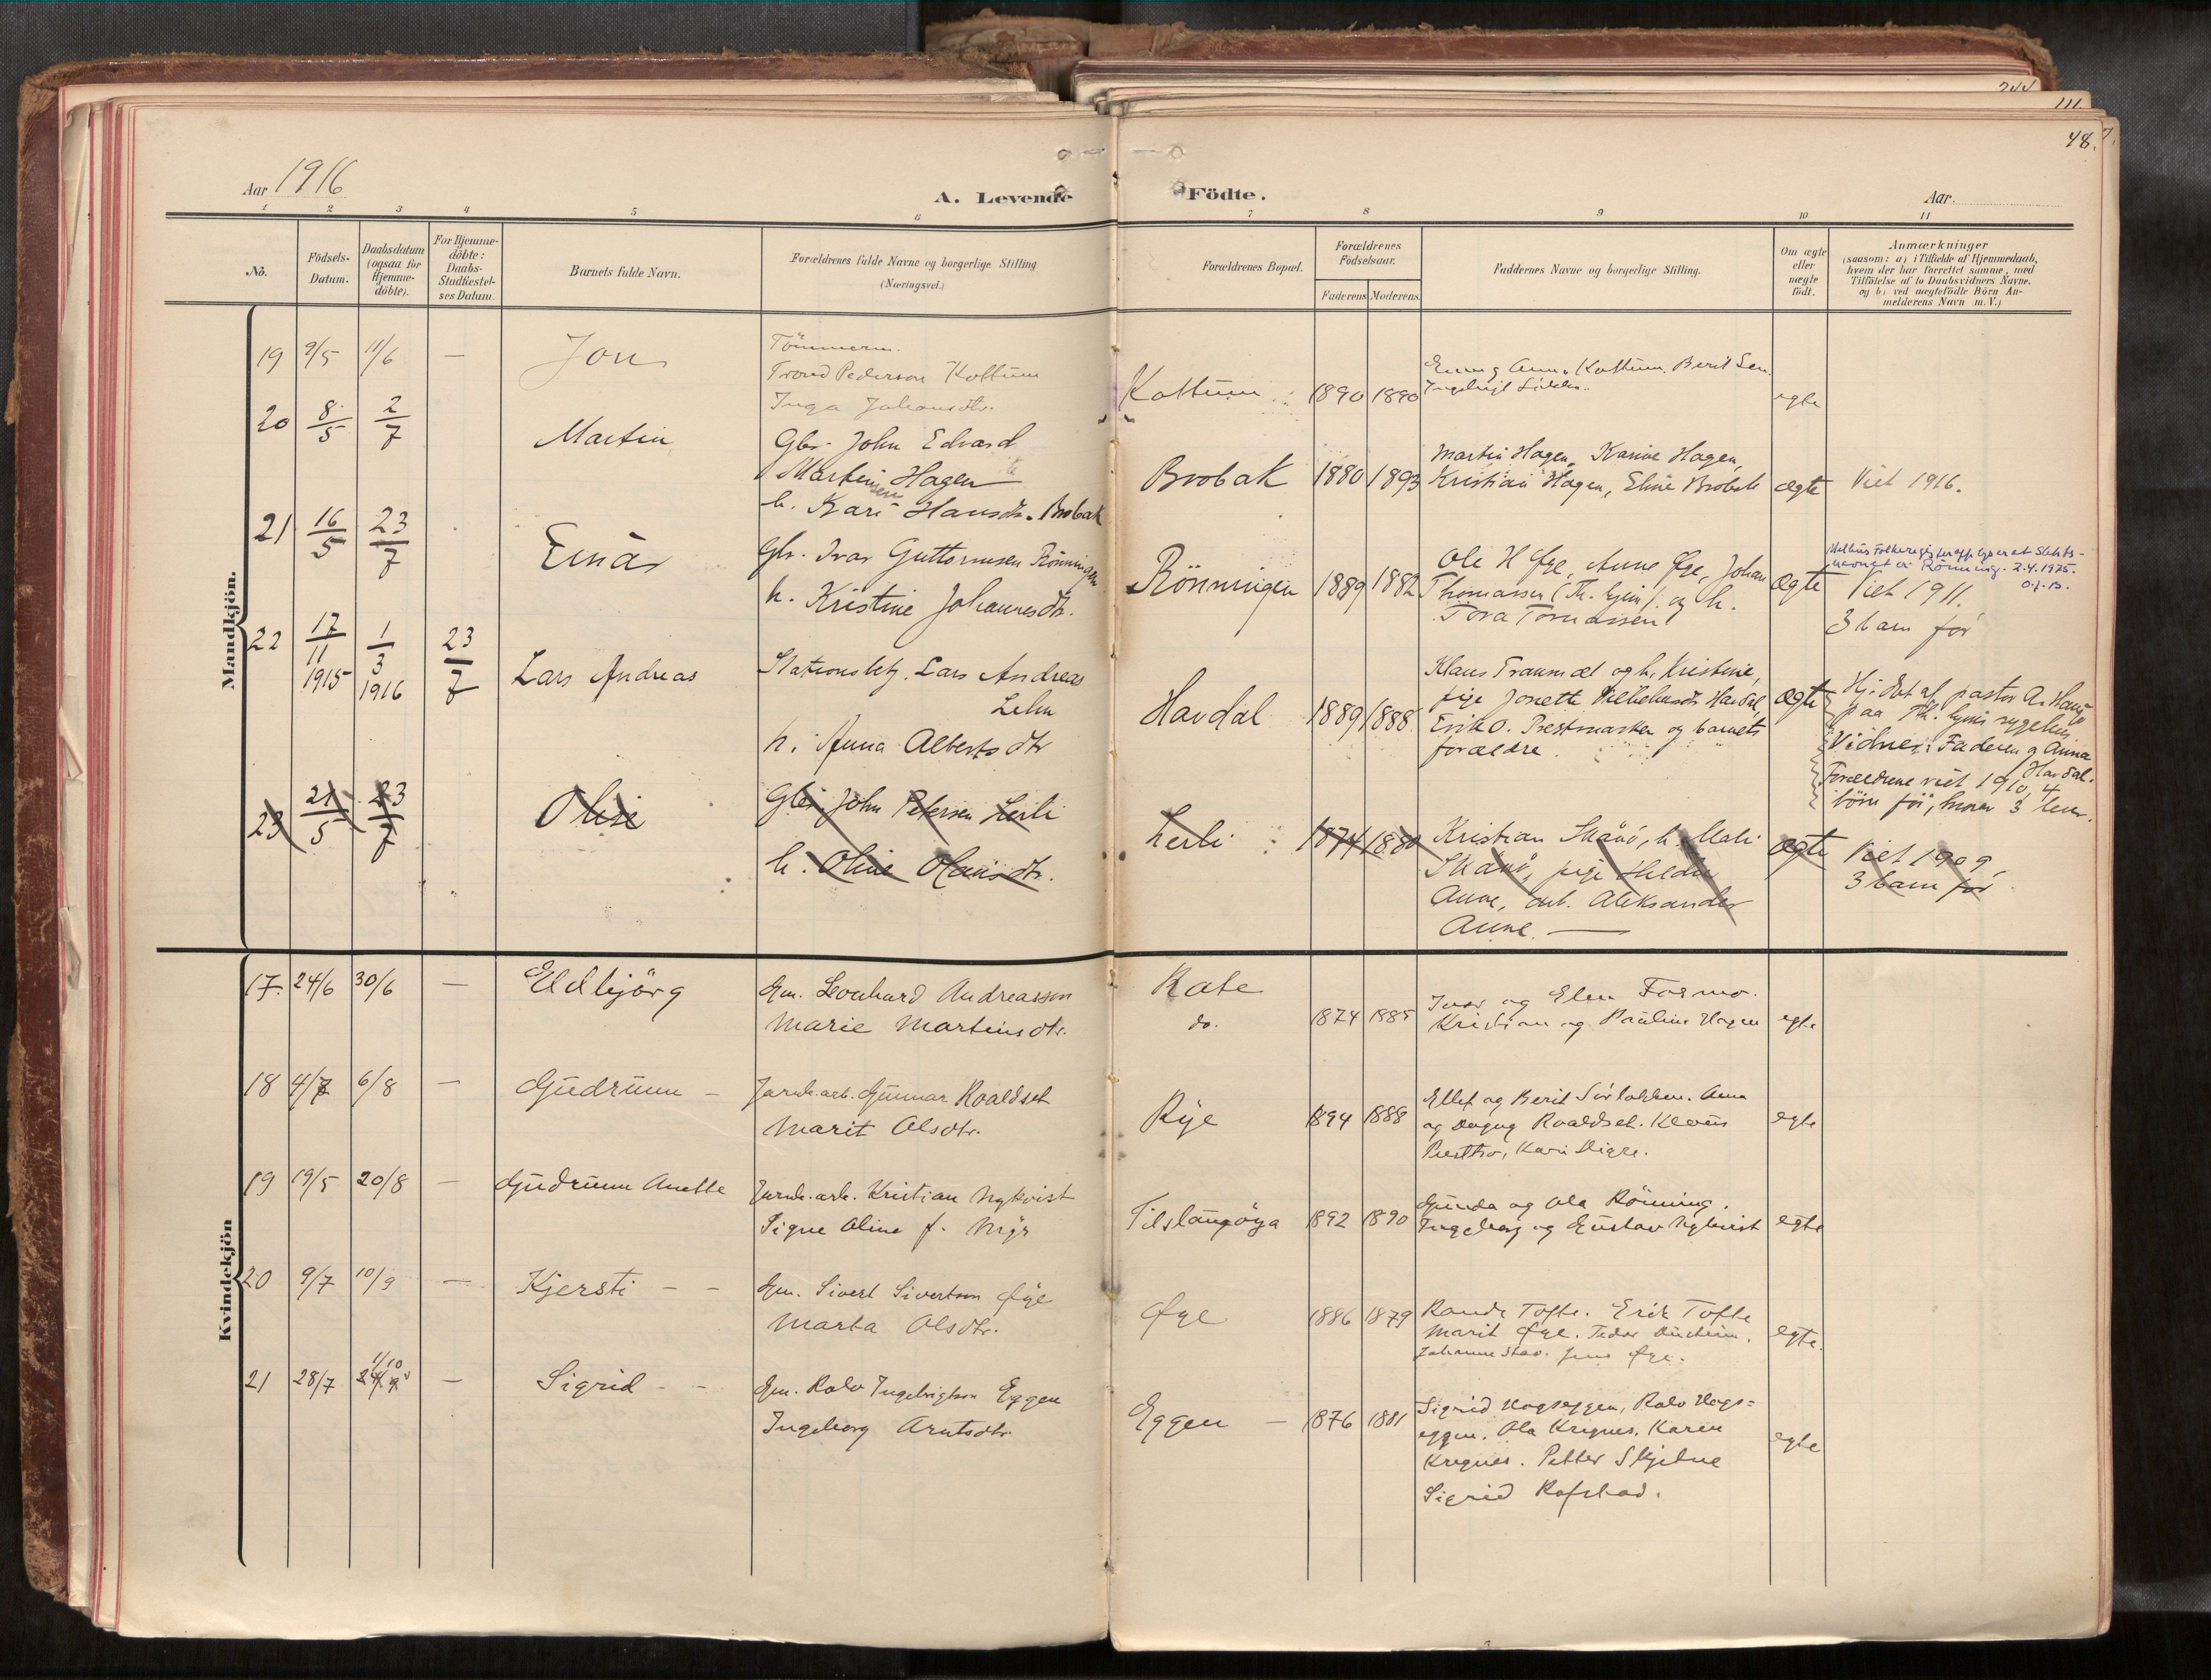 244
111.
48.
Aar 1916
A. Levende Födte.
Aar
1 2 3 4 5 6 7 8 9 10 11
No.
Födsels-
Datum.
Daabsdatum
(ogsaa for
Hjemme-
döbte).
For Hjemme-
döbte:
Daabs-
Stadfæstel-
ses Datum.
Barnets fulde Navn.
Forældrenes fulde Navne og borgerlige Stilling
(Næringsvei.)
Forældrenes Bopæl.
Forældrenes
Födselsaar.
Faderens Moderens
Faddernes Navne og borgerlige Stilling.
Om ægte
eller
uægte
födt.
Anmærkninger
(saasom: a) i Tilfælde af Hjemmedaab,
hvem der har forrettet samme, med
Tilföielse af to Daabsvidners Navne.
og b) ved uægtefödte Börn An-
melderens Navn m. V.)
Mandkjön.
19 9/5 11/6 — Jon
Tömmerm.
Trond Pederson Kottum
Inga Johansdtr.
Kottum 1890 1890
Kottum. Berit
egte
20 8/5 2/7 Martin
Gbr. John Edvard
Martinsen Hagen
h. Kari Hansdtr. Brobak
Brobak 1880 1893
Martin Hagen, Karine Hagen,
Kristian Hagen, Eline Brobak
ægte
Viet 1916.
21 16/5 23/7 Einar
Gbr. Ivar Guttormsen Rönningen
h. Kristine Johannesdtr.
Rönningen 1889 1882
Ole H Øye, Anne Øye, Johan
Thomassen (Th.hjem) og h.
Tora Tomassen
ægte
Melhus Folkeregister opplyser at Slekts-
navnet er Rönning. 2.4.1975.
Viet 1911.
3 barn før
22 17/11 1915 1/3 1916 23/7 Lars Andreas
Stationsbetj. Lars Andreas
Lehn
h. Anna Albertsdtr
Havdal 1889 1888
Klaus Tranmæl og h. Kristine,
pige Jonette Havdal,
Erik O. Prestmarken og barnets
forældre.
ægte
Hj. döbt af pastor A.
paa Th.hjem sygehus
Vidner: Faderen og Anna
Havdal.
Forældrene viet 1910, 4
börn før, hvorav 3 lever.
23 21/5 23/7
Gbr. John Petersen Lerli
h. Oline Olausdtr.
Lerli 1874 1880
Kristian Skånö, h. Mali
Skånö, pige
Aune, arb. Aleksander
Aune. —
ægte
Viet 1909,
3 barn før
Kvindekjön
17. 24/6 30/6 — Eldbjörg
Gm. Leonhard Andreassen
Marie Martinsdtr.
Kate
do. 1874 1885
Ivar og Elen Formo.
Kristian og Pauline Hagen
egte
18 4/7 6/8 — Gudrunn —
Jernb.arb. Gunnar Roaldset
Marit Olsdtr.
Rye 1894 1888
Ellef og Berit Sörlokken. Anna
og Dagny Roaldset.
Kari Digre.
egte
19 19/5 20/8 — Gudrunn Anette
Jernb.arb. Kristian Nykvist
Signe Oline f. Myr
1892 1890
Gunda og Ola Rönning.
Ingeborg og Gustav Nykvist
egte
20 9/7 10/9 — Kjersti — —
Gm. Sivert Sivertsen Øye
Marta Olsdtr.
Øye 1886 1879
Randi Tofte. Erik Tofte
Marit Øye.
Johanne Stav. Jens Øye.
egte.
21 28/7 1/10 — Sigrid — —
Gm. Rolv Ingebrigtson Eggen
Ingeborg Arntsdtr.
Eggen — 1876 1881
Sigrid Hagseggen, Rolv Hags=
eggen. Ola Kregnes. Karen
Kregnes. Petter Skjetne
Sigrid Rofstad.
egte